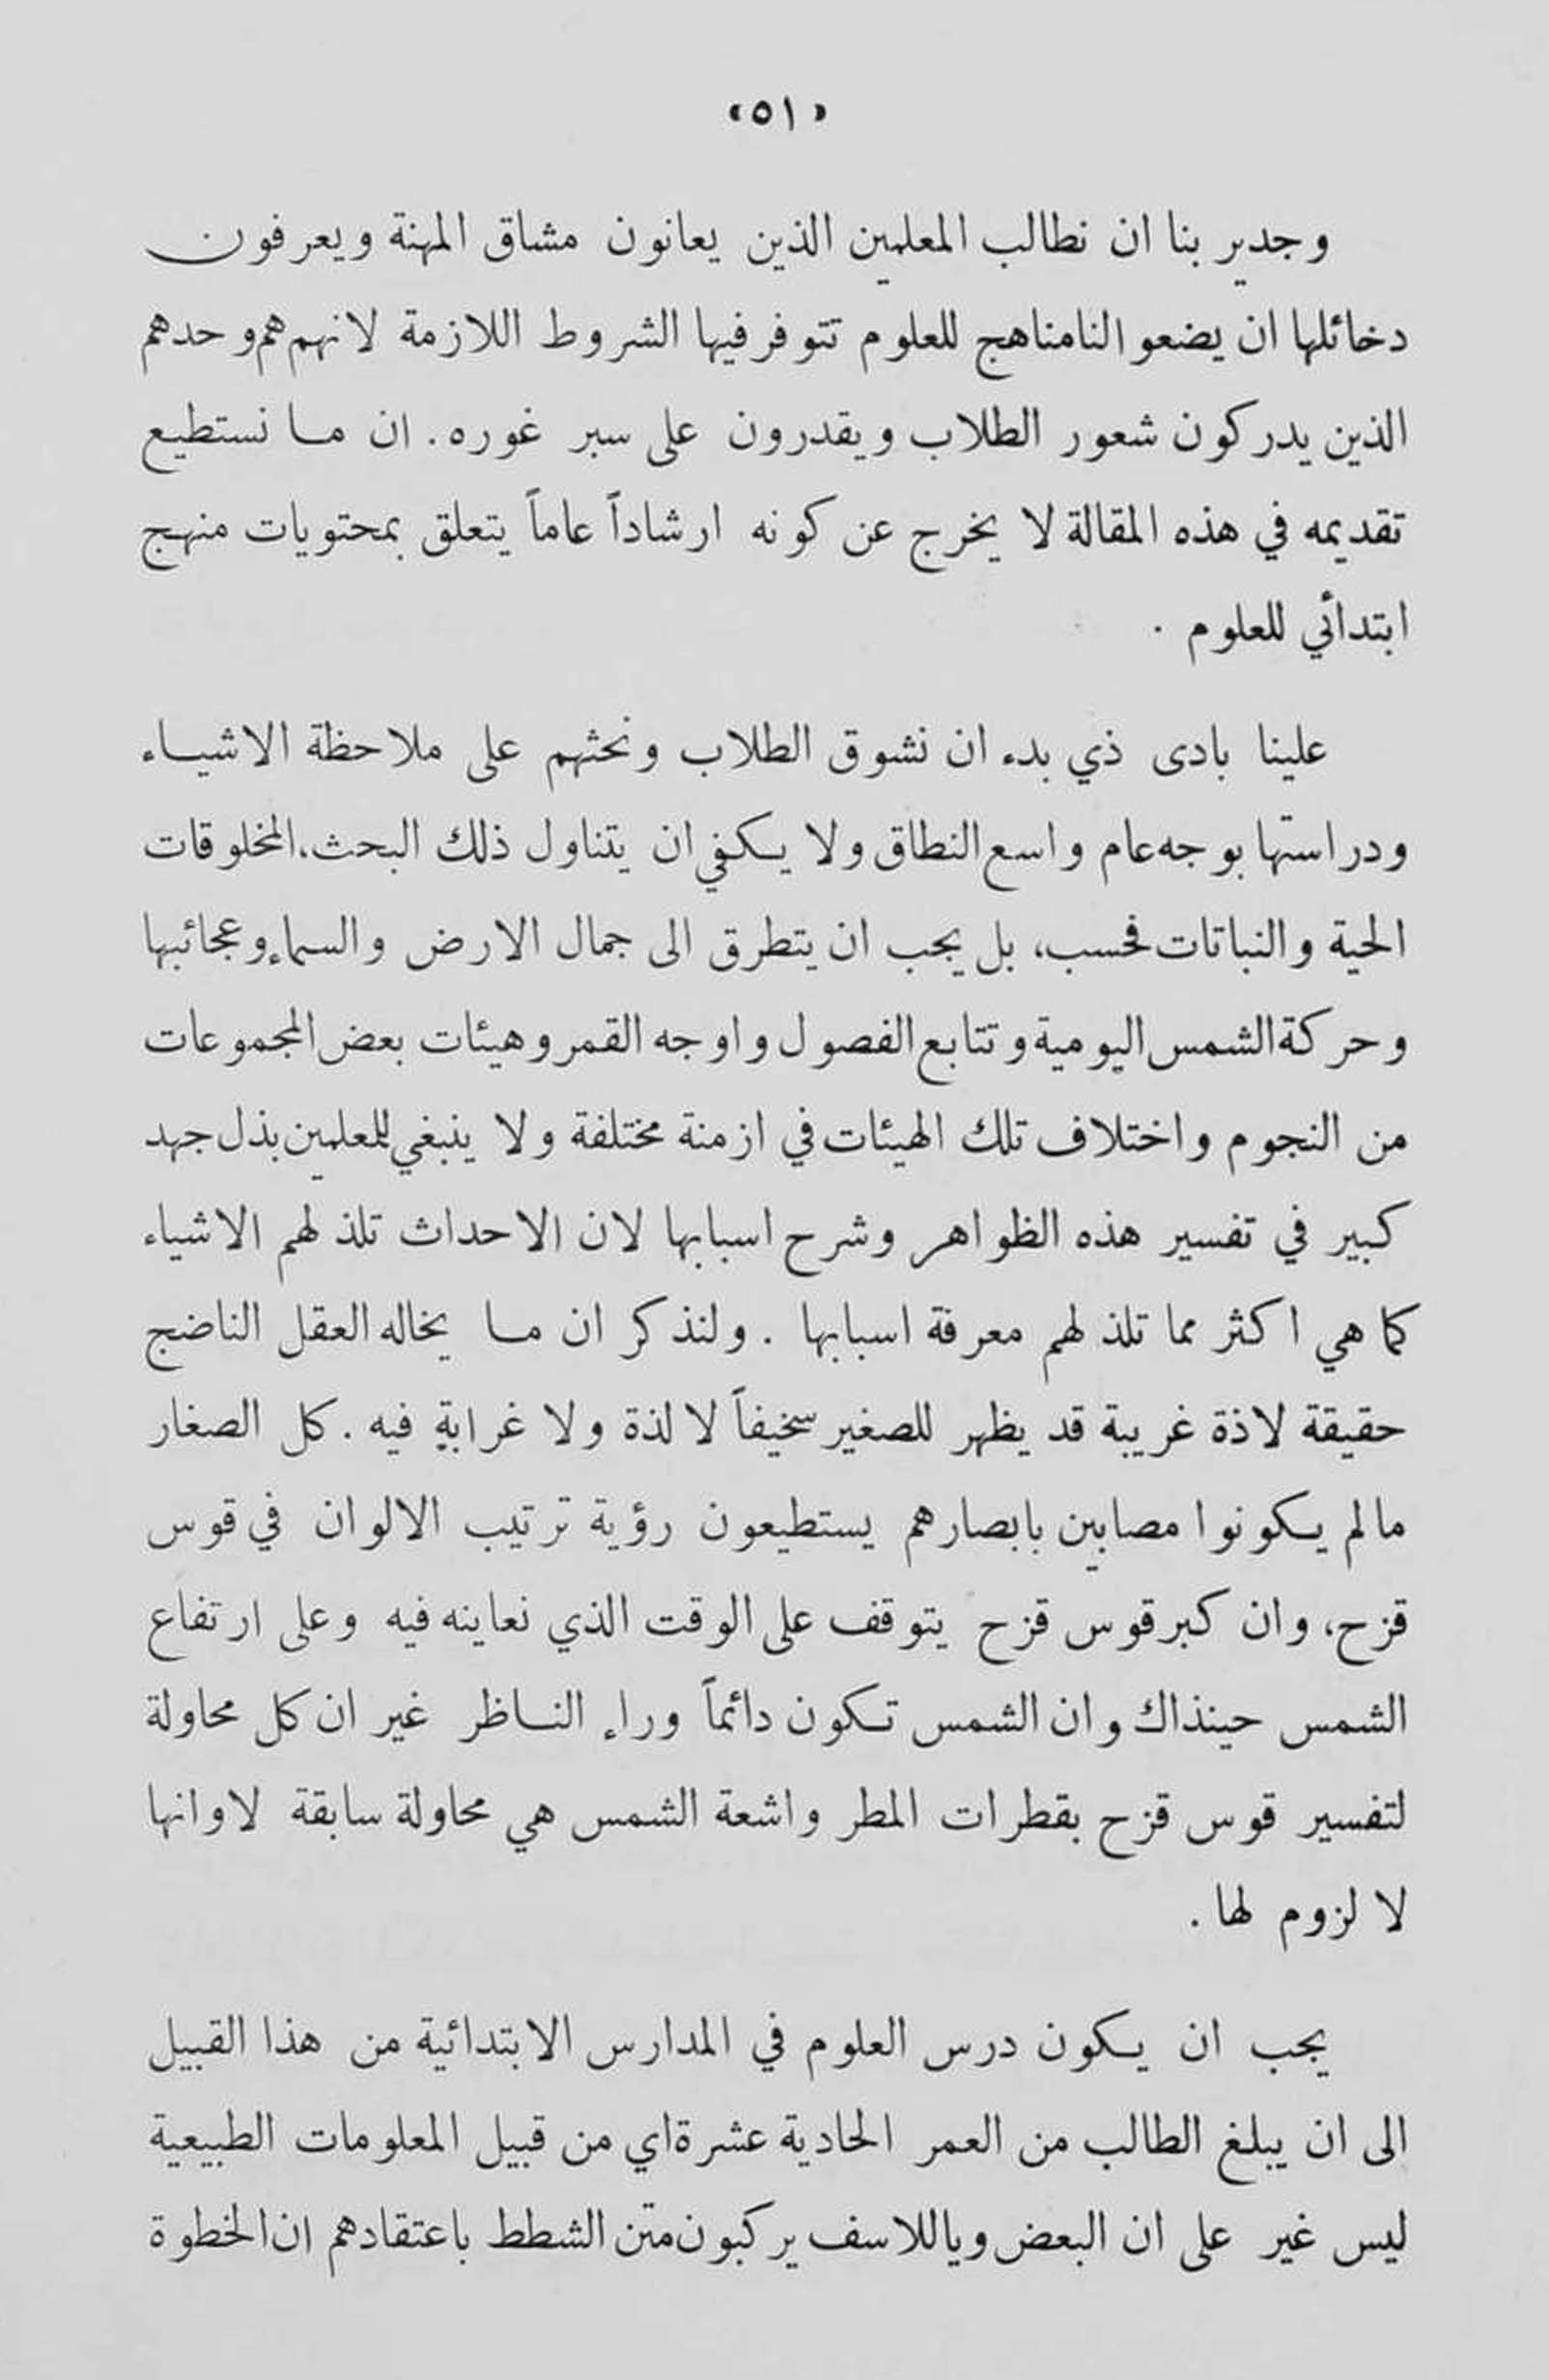 «٥١»
وجدير بنا ان نطالب المعلمين الذين يعانون مشاق المهنة ويعرفون
دخائلها ان يضعوا لنا مناهج للعلوم تتوفر فيها الشروط اللازمة لانهم هم وحدهم
الذين يدركون شعور الطلاب ويقدرون على سبر غوره. ان ما نستطيع
تقديمه في هذه المقالة لا يخرج عن كونه ارشاداً عاماً يتعلق بمحتويات منهج
ابتدأئي للعلوم .
علينا بادى ذي بدء ان نشوق الطلاب ونحثهم على ملاحظة الاشياء
ودراستها بوجه عام واسع النطاق ولا يكفي ان يتناول ذلك البحث، المخلوقات
الحية والنباتات فحسب، بل يجب ان يتطرق الى جمال الارض والسماء وعجائبها
وحركة الشمس اليومية وتتابع الفصول واوجه القمر وهيئات بعض المجموعات
من النجوم واختلاف تلك الهيئات في ازمنة مختلفة ولا ينبغي للمعلمين بذل جهد
كبير في تفسير هذه الظواهر وشرح اسبابها لان الاحداث تلذ لهم الاشياء
كما هي اكثر مما تلذ لهم معرفة اسبابها . ولنذكر ان ما يخاله العقل الناضج
حقيقة لاذة غريبة قد يظهر للصغير سخيفاً لا لذة ولا غرابة فيه . كل الصغار
مالم يكونوا مصابين بابصارهم يستطيعون رؤية ترتيب الالوان في قوس
قزح، وان كبر قوس قزح يتوقف على الوقت الذي نعاينه فيه وعلى ارتفاع
الشمس حينذاك وان الشمس تكون دائماً وراء الناظر غير ان كل محاولة
لتفسير قوس قزح بقطرات المطر واشعة الشمس هي محاولة سابقة لاوانها
لا لزوم لها .
يجب ان يكون درس العلوم في المدارس الابتدائية من هذا القبيل
الى ان يبلغ الطالب من العمر الحادية عشرة اي من قبيل المعلومات الطبيعية
ليس غير على ان البعض وياللاسف يركبون متن الشطط باعتقادهم ان الخطوة